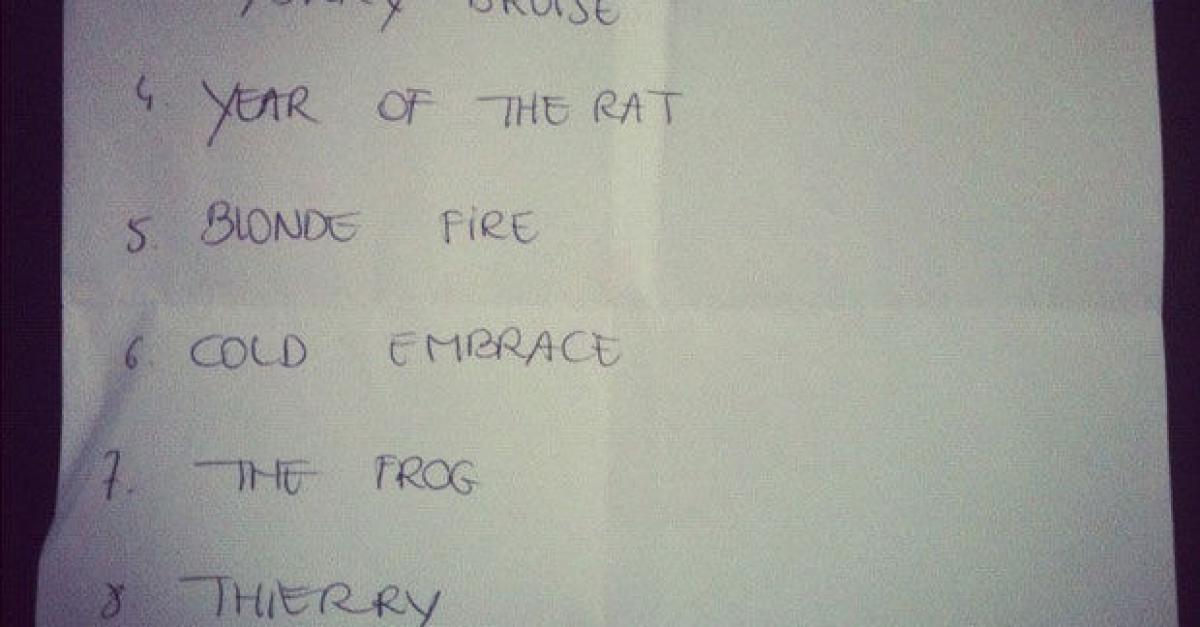 BRUISE
4. YEAR OF THE RAT
5. BLONDE FIRE
6. COLD EMBRACE
7. THE FROG
8 THIERRY